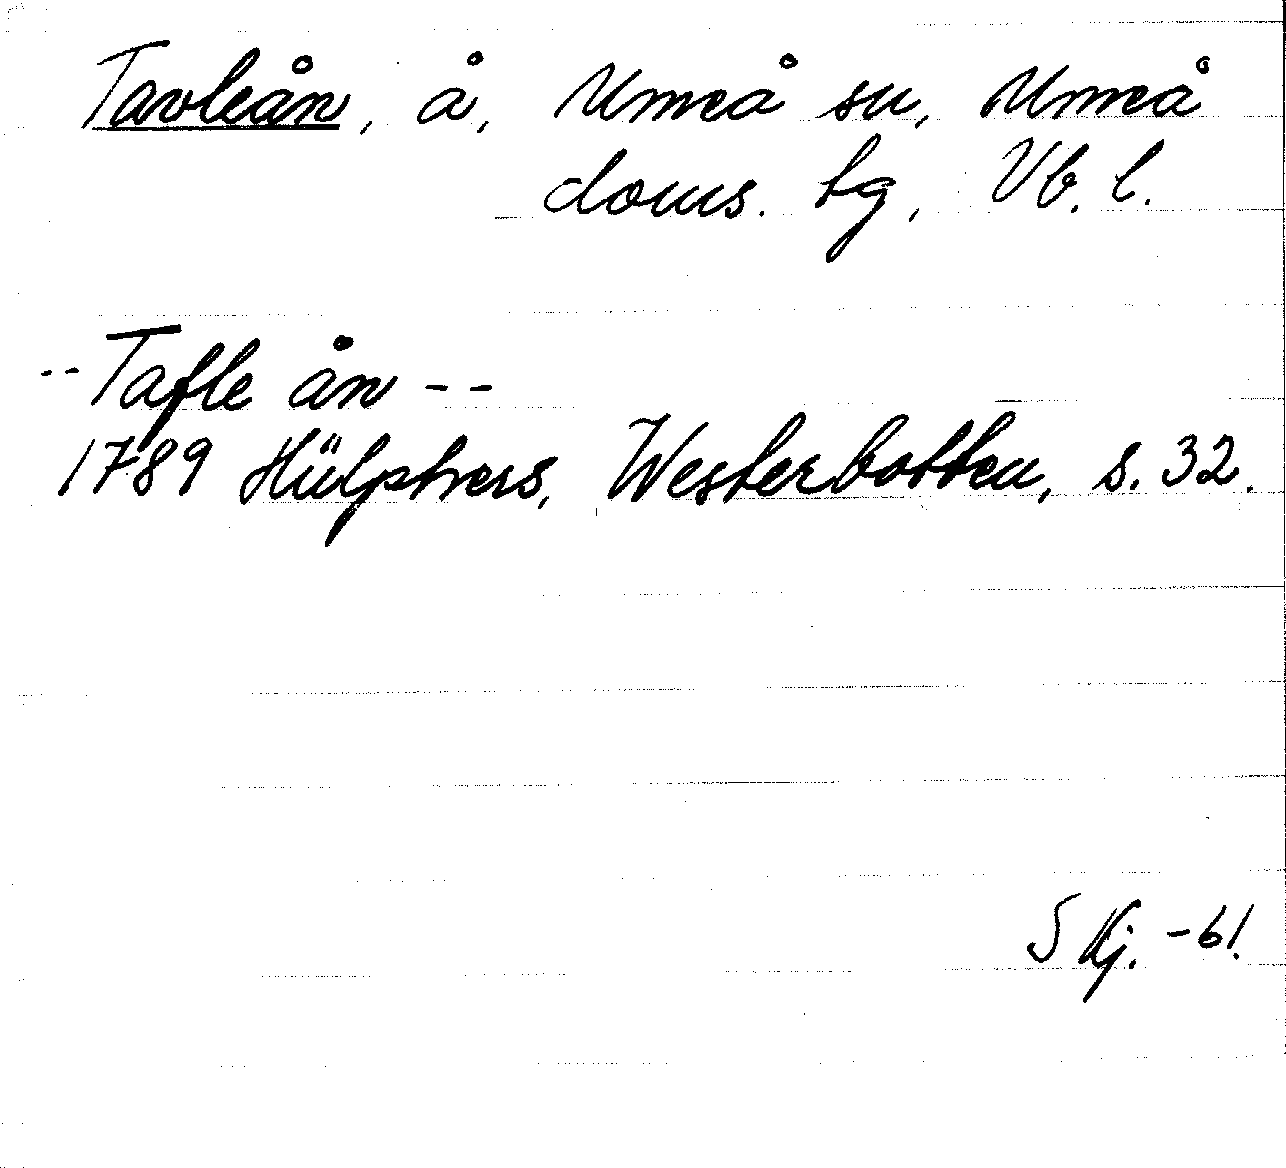 Tavleån, å, Umeå sn, Umeå
doms. tg, Vb. l.
-- Tafle ån --
1789 Hülphers, Westerbotten, s. 32.
S Kj. -61.